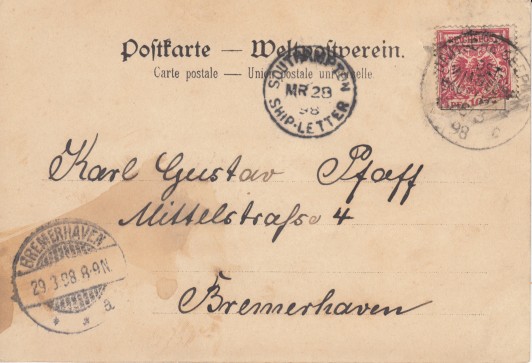 Postkarte — Weltpostverein.
Carte postale — Union postale universelle.
SOUTHAMPTON
MR 28
98
SHIP-LETTER
98 c
Karl Gustav Pfaff
Mittelstraſse 4
BREMERHAVEN
29.3.98.8-9N
* * a
Bremerhaven